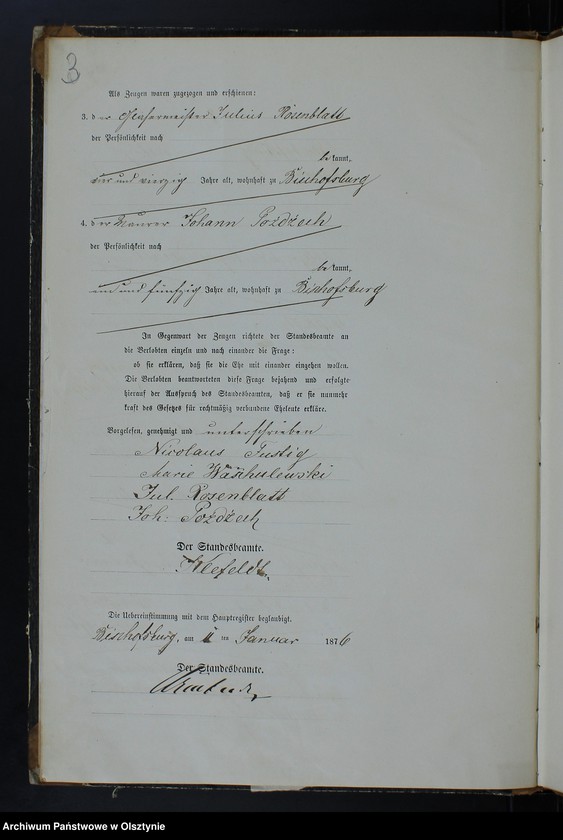 3
Als Zeugen waren zugezogen und erschienen:
3. der Glasermeister Julius Rosenblatt
der Persönlichkeit nach
bekannt,
vier und vierzig Jahre alt, wohnhaft zu Bischofsburg
4. der Maurer Johann Pozdzech
der Persönlichkeit nach
bekannt,
und fünfzig Jahre alt, wohnhaft zu Bischofsburg
In Gegenwart der Zeugen richtete der Standesbeamte an
die Verlobten einzeln und nach einander die Frage:
ob sie erklären, daß sie die Ehe mit einander eingehen wollen.
Die Verlobten beantworteten diese Frage bejahend und erfolgte
hierauf der Ausspruch des Standesbeamten, daß er sie nunmehr
kraft des Gesetzes für rechtmäßig verbundene Eheleute erkläre.
Vorgelesen, genehmigt und unterschrieben
Nicolaus Tustig
Marie
Jul. Rosenblatt
Joh. Pozdzech
Der Standesbeamte.
Klefeldt.
Die Uebereinstimmung mit dem Hauptregister beglaubigt.
Bischofsburg, am ten Januar 1876
Der Standesbeamte.
Archiwum Państwowe w Olsztynie